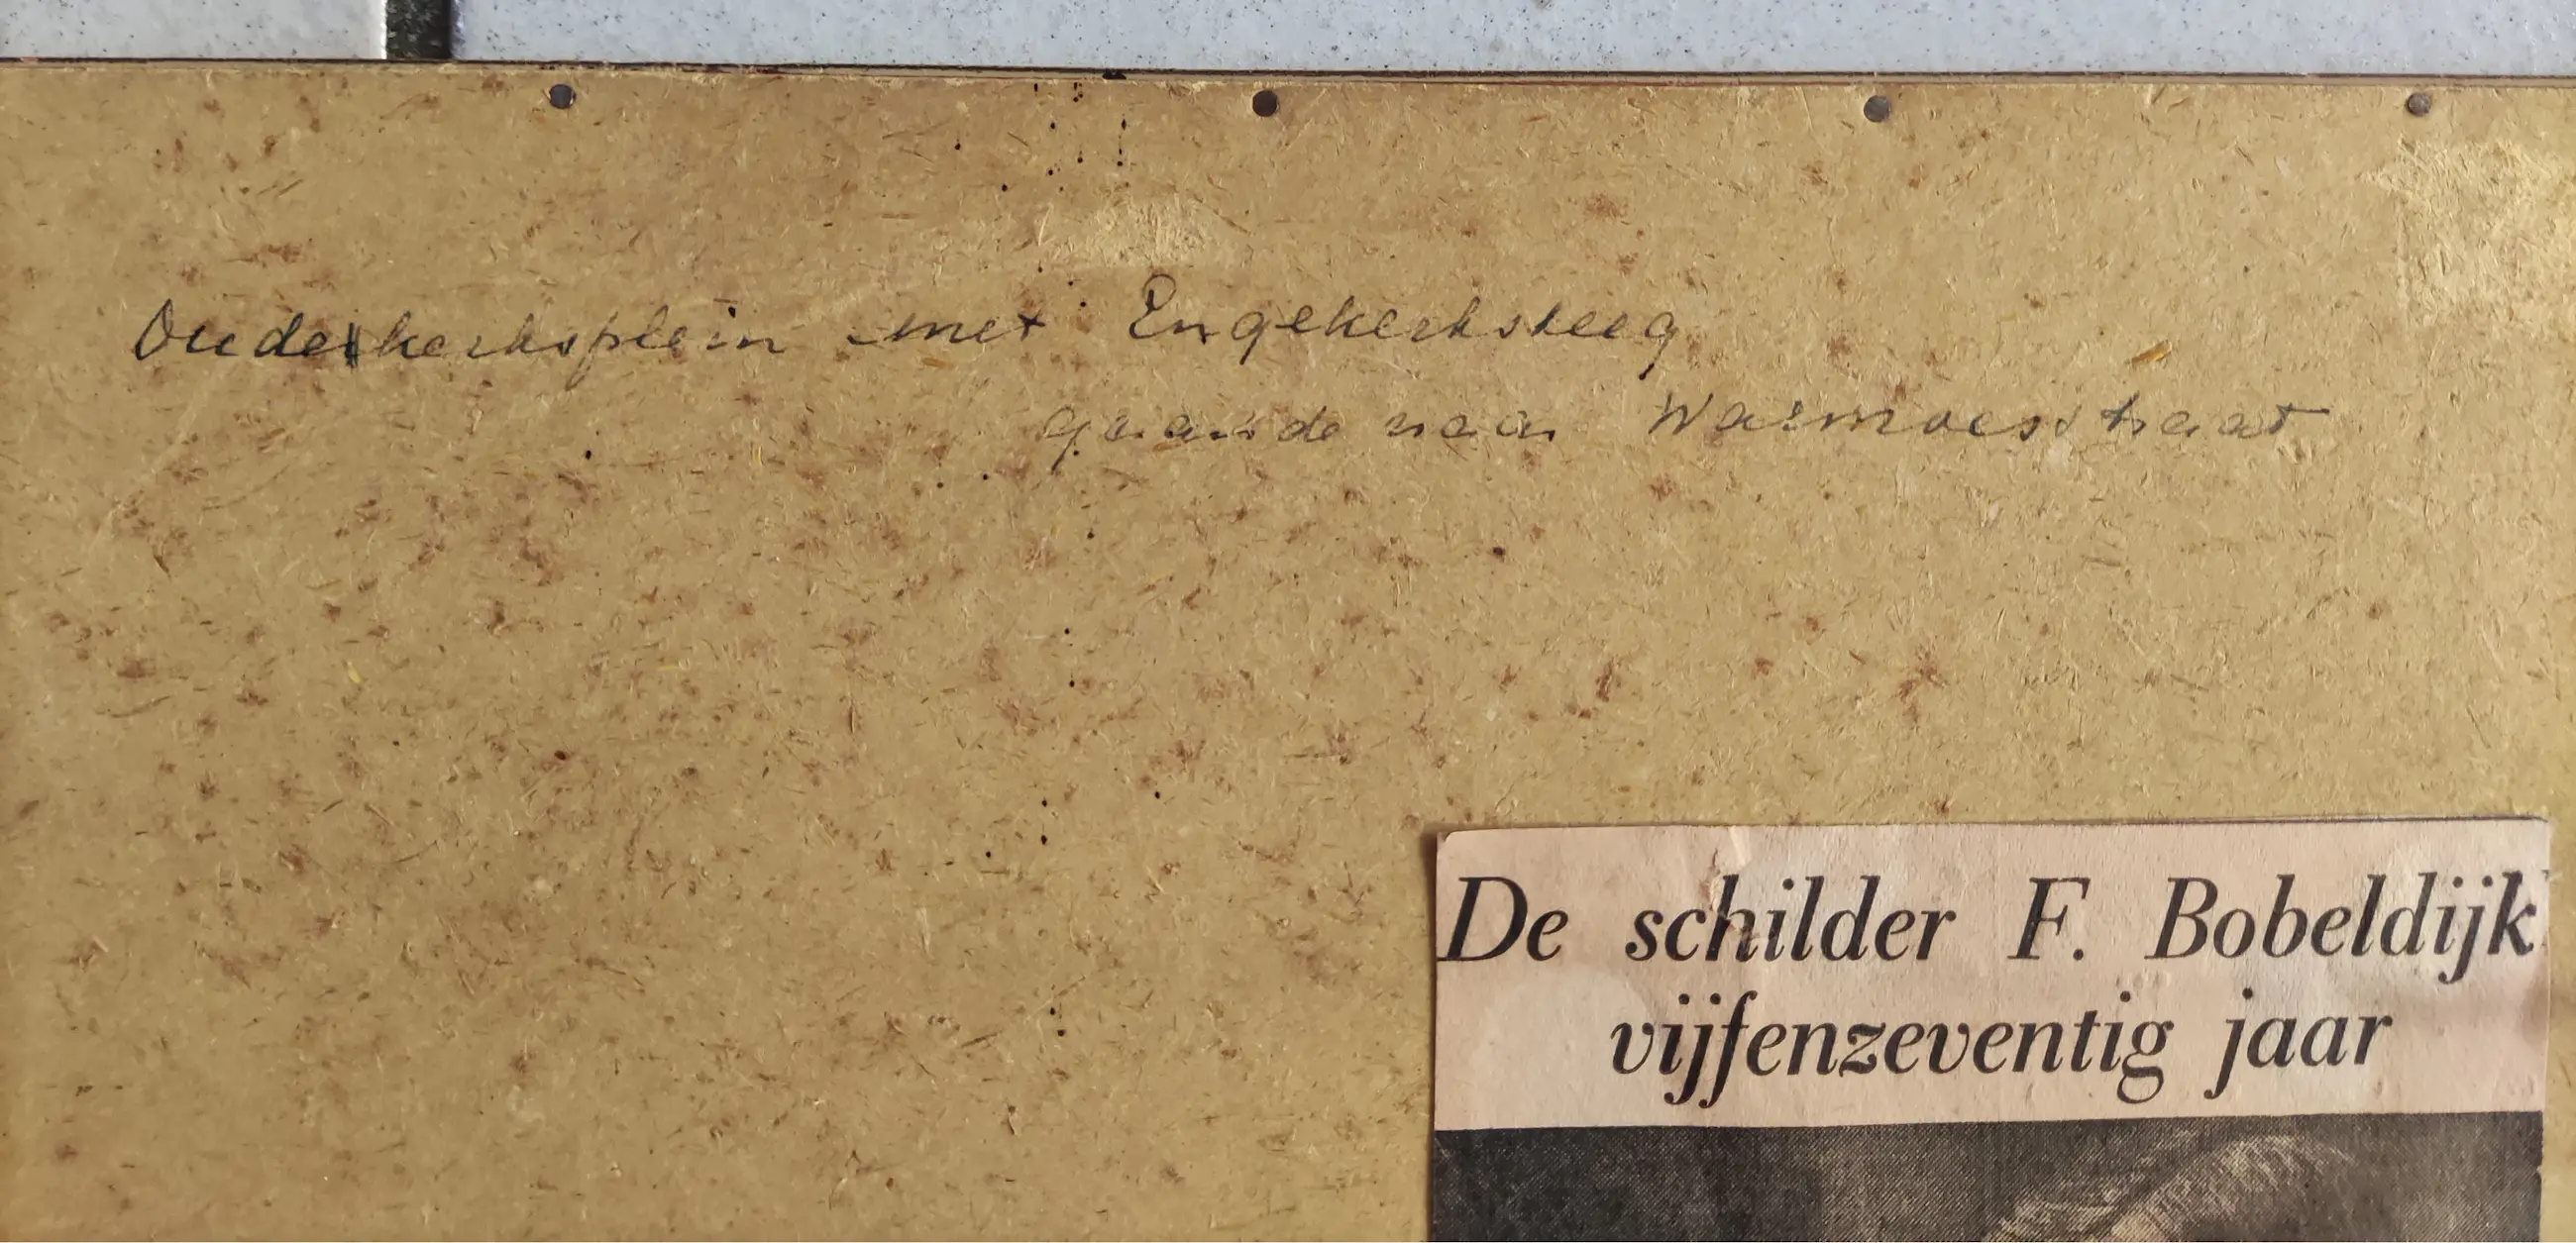 Oudekerksplein met Engekerksteeg
gaande naar Warmoesstraat
De schilder F. Bobeldijk
vijfenzeventig jaar